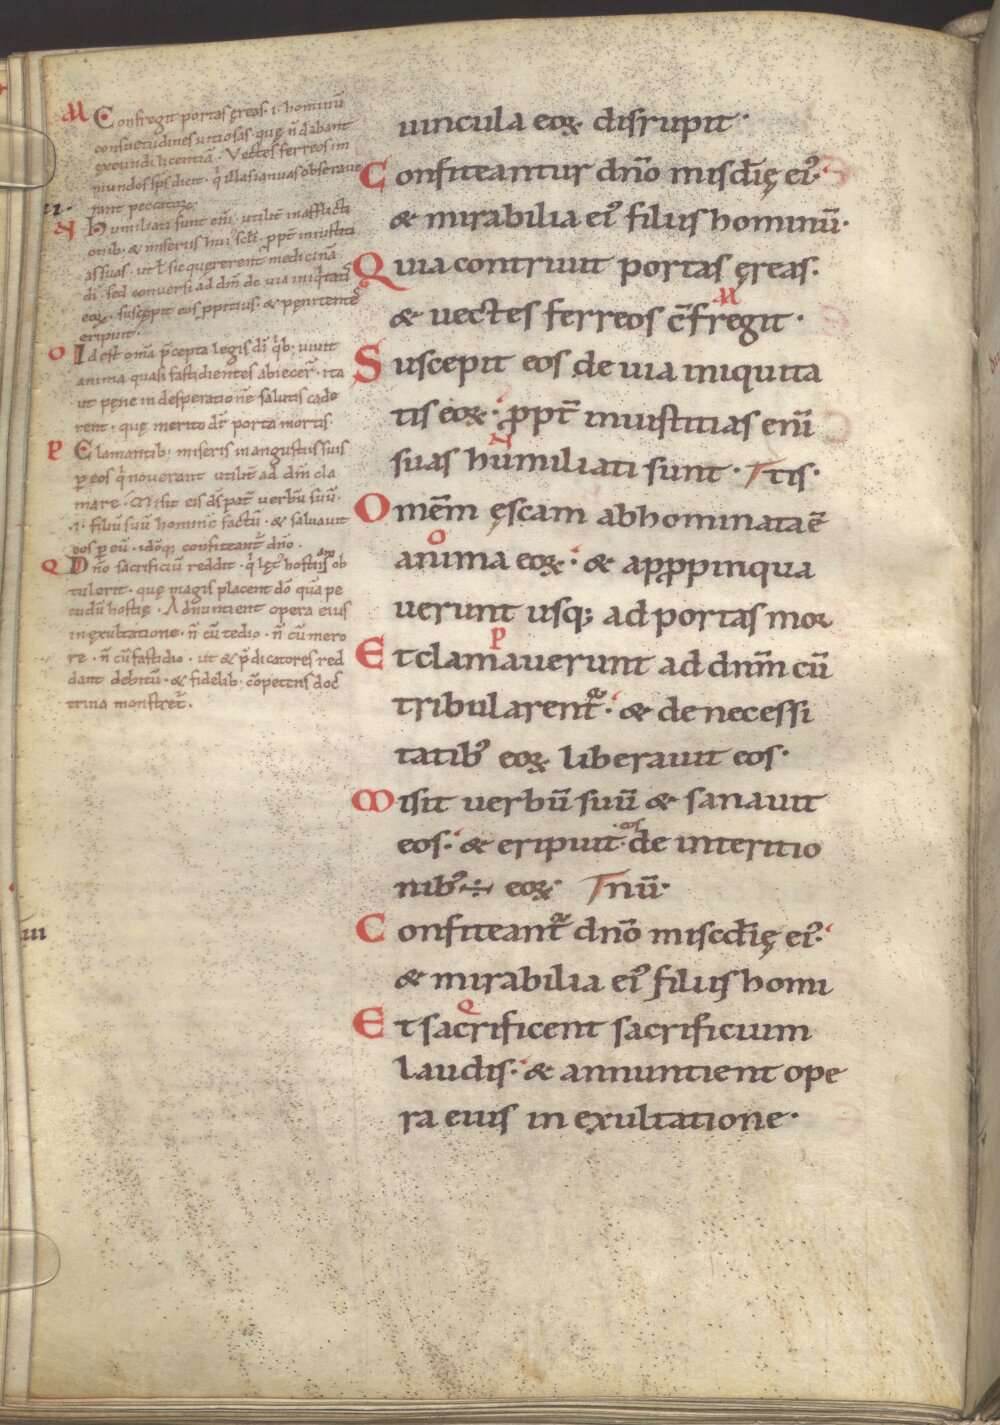 M Confregit portas ęreas · i · hominū
consuetudines uitiosas · quę n̄ dabant
exeundi licentiā · Vectes ferreos im
mundos sp̄s dicit · q̄ illas ianuas obseraue
rant peccatoꝝ·
N Humiliati sunt eni᷑ utilit̄ in afflicti
onib; & miseriis hui᷒ scl̄i · ꝓpt̄ iniustiti
as suas · ut ł sic quęrerent medicinā
di᷑ · sed conuersi ad dn̄m de uia iniq̇tatis
eoꝝ · suscępit eos ꝓpitius · & pęnitente᷑
eripuit ·
O Id est om̄a p̄cepta legis di᷑ q̇b; uiuit
anima quasi fastidientes abiecer̄ · ita
ut pęne in desperatione᷑ salutis cade
rent · quę merito dr̄ porta mortis ·
P Clamantib; miseris in angustiis suis
ꝑ eos q̇ nouerant utilit̄ ad dn̄m cla
mare · Misit eis ds̄ pat̄ uerbū suū ·
· i · filiū suū homine᷑ factū · & saluauit
eos ꝑ eū · idōq; confiteant᷑ dn̄o ·
Q Dn̄o sacrificiū reddit · q̇ lęt᷒ hostias ob
tulerit · quę magis placent dō quā pe
cudū hostię · Adnuntient opera eius
in exultatione · n̄ cū tedio · n̄ cū mero
re · n̄ cū fastidio · ut & p̄dicatores red
dant debitū · & fidelib; cōpetens doct
trina monstret᷑ ·
uincula eoꝝ disrupit ·
Confiteantur dn̄o misc̄dię ei᷒·
& mirabilia ei᷒ filiis hominū·
Quia contriuit portas ęreas·
M
& uectes ferreos c̄fregit ·
Suscepit eos de uia iniquita
tis eoꝝ · ꝓpt̄ iniustitias eni᷑
N
suas humiliati sunt · tis·
Omēm ęscam abhominata ē
O
anima eoꝝ · & apꝓpinqua
uerunt usq; ad portas mor
P
Et clamauerunt ad dn̄m cū
tribularent᷑ · & de necessi
tatib᷒ eoꝝ liberauit eos·
Misit uerbū suū & sanauit
eos
eos · & eripuit · de interitio
nib᷒ ÷ eoꝝ · nū·
III
Confiteant᷑ dn̄o misc̄dię ei᷒·
& mirabilia ei᷒ filiis homi
Q
Et sacrificent sacrificium
laudis · & annuntient ope
ra eius in exultatione ·